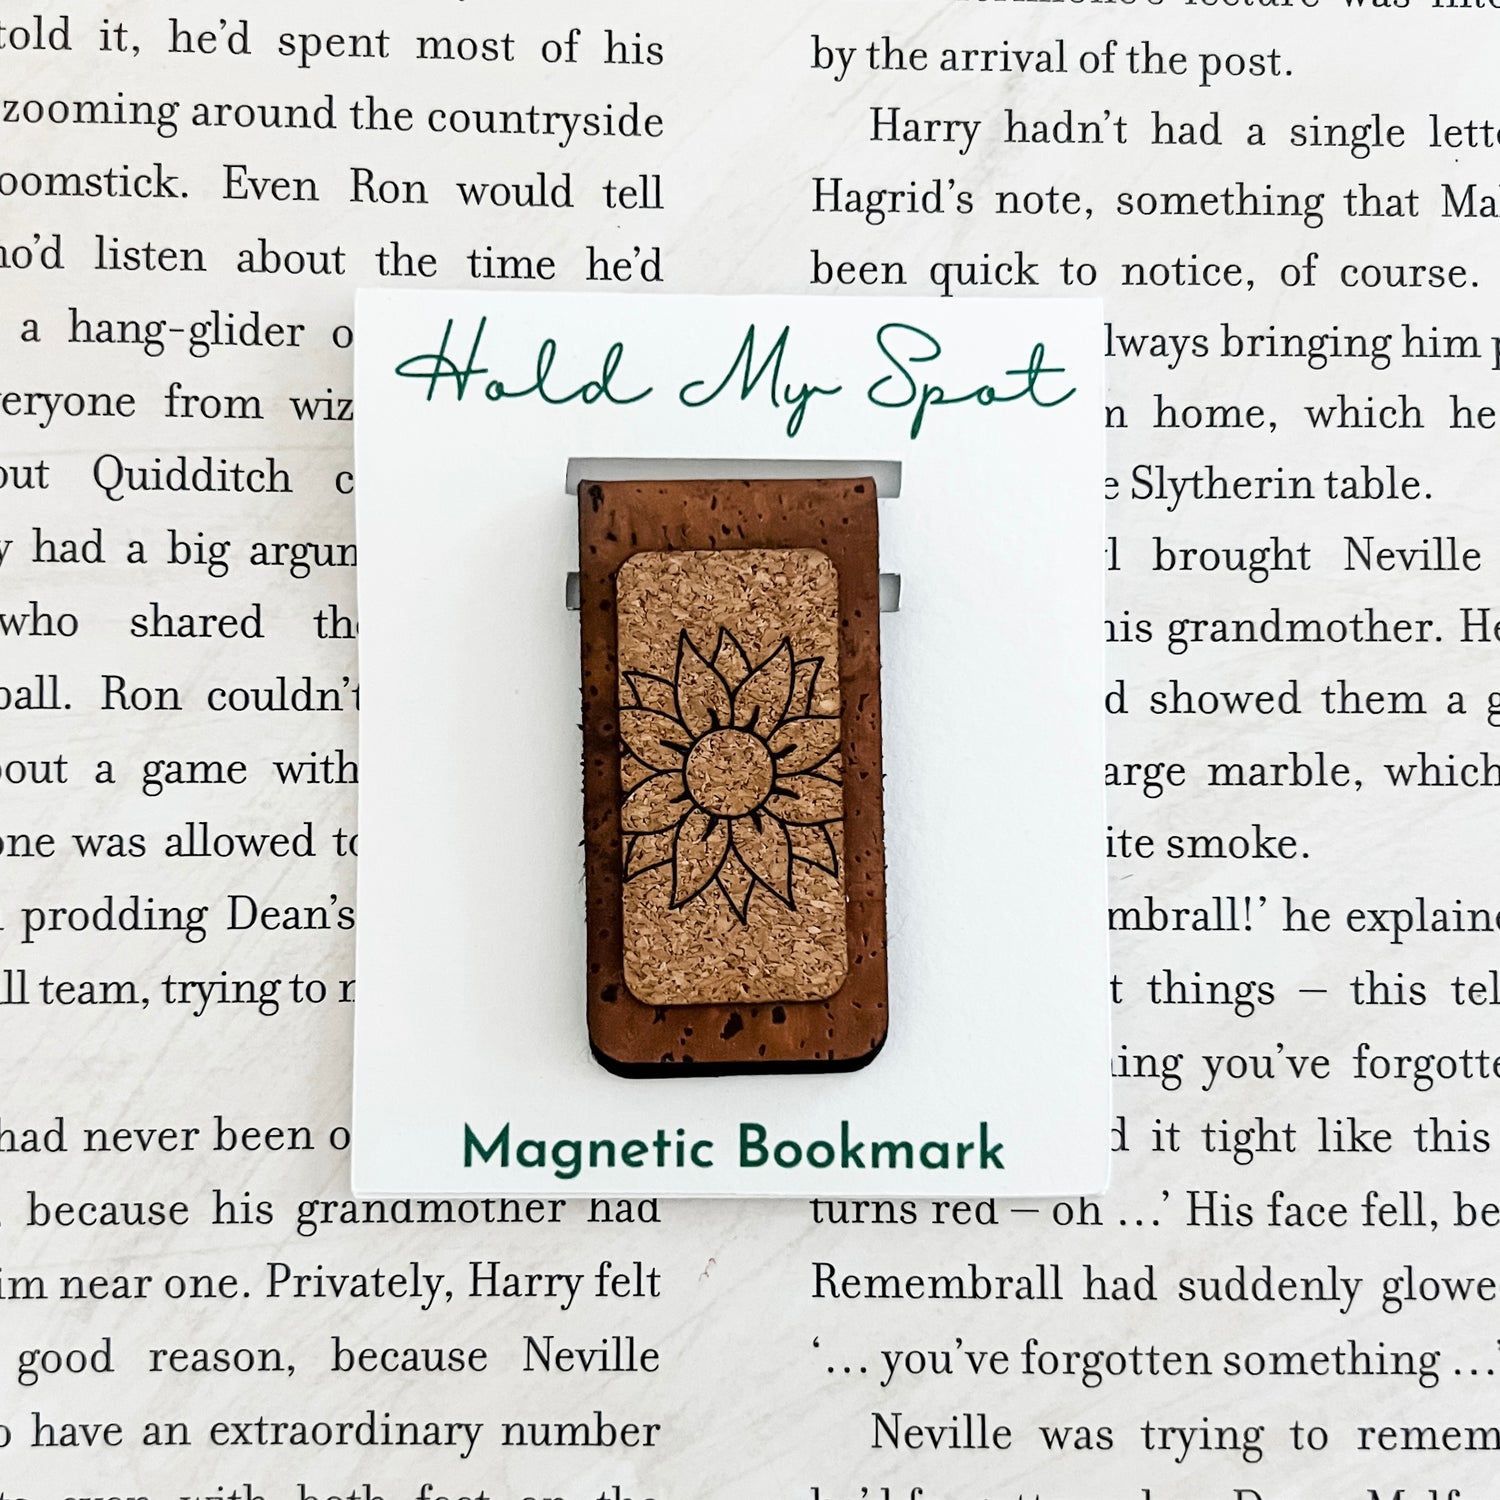 told it, he'd spent most of his
zooming around the countryside
oomstick. Even Ron would tell
o'd listen about the time he'd
a hang-glider o
eryone from wiz
out Quidditch c
y had a big argun
who shared the
ball. Ron couldn't
bout a game with
one was allowed to
prodding Dean's
ll team, trying to
had never been o
because his grandmother had
im near one. Privately, Harry felt
good reason, because Neville
o have an extraordinary number
even with both feet on the
lecture was
by the arrival of the post.
Harry hadn't had a single lette
Hagrid's note, something that Mal
been quick to notice, of course.
lways bringing him p
m home, which he
e Slytherin table.
l brought Neville
his grandmother. He
d showed them a g
arge marble, which
ite smoke.
mbrall!' he explaine
t things – this tel
ing you've forgotte
d it tight like this
turns red – oh …' His face fell, be
Remembrall had suddenly glowe
'… you've forgotten something …'
Neville was trying to remem
Hold My Spot
Magnetic Bookmark